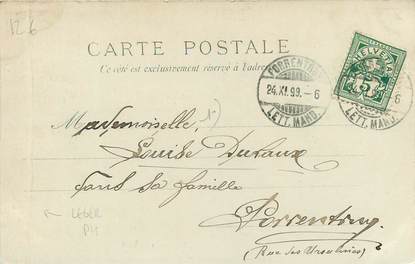 126
CARTE POSTALE
Ce côté est exclusivement réservé à l'adresse
PORRENTRUY
24.XI.99.-6
LETT. MAND.
HELVETIA
5
6
LETT. MAND.
Mademoiselle,
Louise
dans sa famille
Porrentruy.
(Rue des Ursulines)
LEGER
PLI